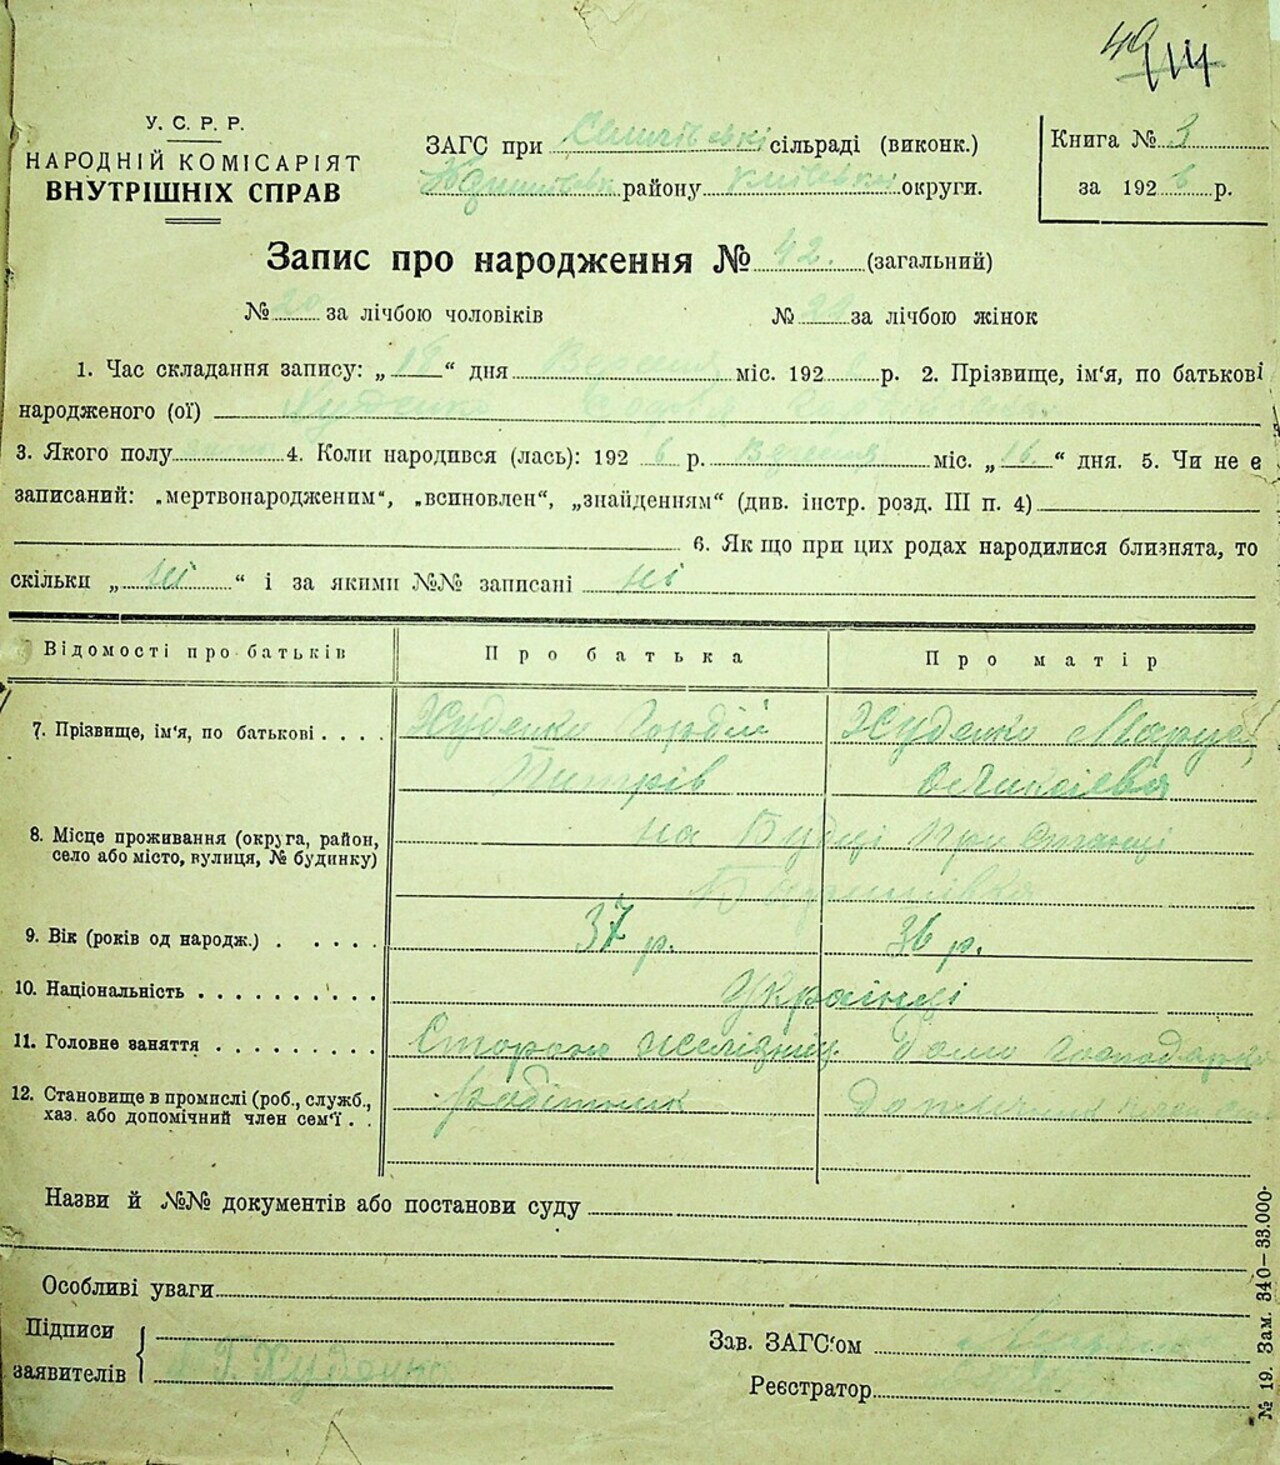 49
У. С. Р. Р.
НАРОДНІЙ КОМІСАРІЯТ
ВНУТРІШНІХ СПРАВ
ЗАГС при сільраді (виконк.)
району округи.
Книга № 3
за 192 6 р.
Запис про народження № 42. (загальний)
№ 20 за лічбою чоловіків № 22 за лічбою жінок
1. Час складання запису: „ “ дня Вересня міс. 192 р. 2. Прізвище, ім‘я, по батькові
народженого (ої) Худенко Софія
3. Якого полу 4. Коли народився (лась): 192 6 р. Вересня міс. „16.“ дня. 5. Чи не є
записаний: „мертвонародженим“, „всиновлен“, „знайденням“ (див. інстр. розд. III п. 4)
6. Як що при цих родах народилися близнята, то
скільки „ ні “ і за якими №№ записані ні
Відомості про батьків Про батька Про матір
7. Прізвище, ім‘я, по батькові Худенко Гордій Худенко Марія
Титрів
8. Місце проживання (округа, район, на Будці При Станції
село або місто, вулиця, № будинку)
9. Вік (років од народж.) 37 р. 36 р.
10. Національність Українці
11. Головне заняття Сторож Дом Господарка
12. Становище в промислі (роб., служб., робітник
хаз. або допомічний член сем‘ї
Назви й №№ документів або постанови суду
Особливі уваги
Підписи
заявителів Г. Худенко
Зав. ЗАГС‘ом
Реєстратор
№ 19. Зам. 340—33.000.